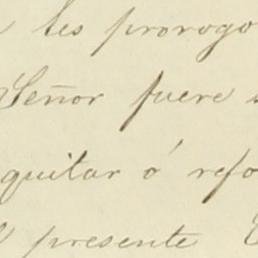 les prorogo
Señor fuere s
quitar ó refo
presente